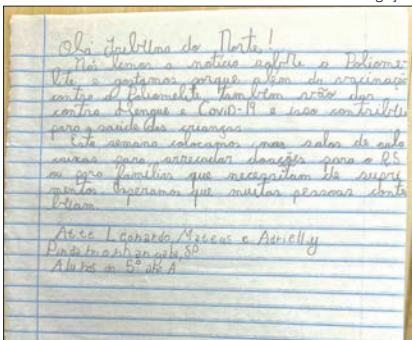 Olá Tribuna do Norte!
Nós lemos a notícia sobre a Poliome-
lite e gostamos porque além da vacinação
contra a Poliomelite também vão dar
contra dengue e Covid-19 e isso contribui
para a saúde das crianças.
Esta semana colocamos nas salas de aula
caixas para arrecadar doações para o RS
ou para famílias que necessitam de supri
mentos. Esperamos que muitas pessoas contri
buam.
Atte Leonardo, Mateus e Adrielly
Pindamonhangaba, SP
Alunos do 5º ano A